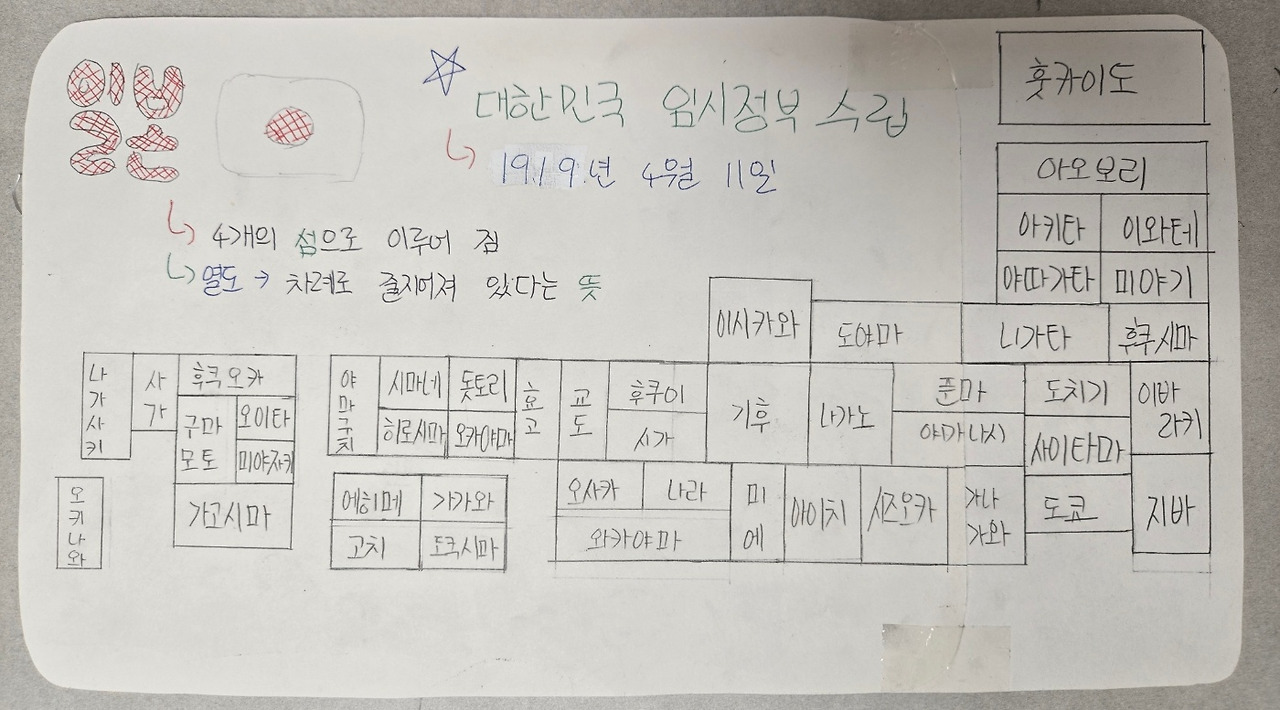 일본
대한민국 임시정부 수립
1919년 4월 11일
4개의 섬으로 이루어 짐
열도 → 차례로 줄지어져 있다는 뜻
훗카이도
아오모리
아키타 이와테
야마가타 미야기
이시카와 도야마 니가타 후쿠시마
나가사키 사가 후쿠오카
구마모토 오이타
미야자키
가고시마
오키나와
야마구치 시마네 돗토리
히로시마 오카야마
효고 교도 후쿠이
시가
기후 나가노 준마
야마나시
도치기 이바라키
사이타마
에히메 가가와
고치 도쿠시마
오사카 나라
와카야마
미에 아이치 시즈오카 가나가와 도쿄 지바